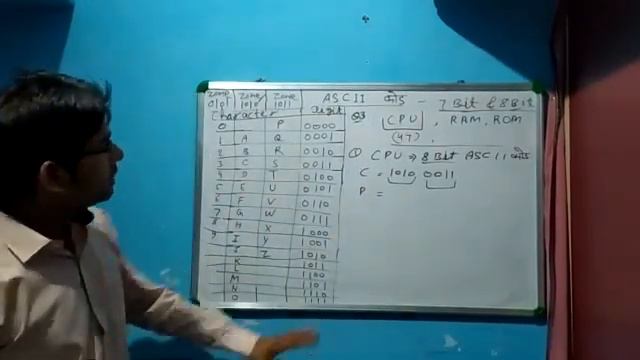 Zone Zone Zone ASCII कोड - 7 Bit & 8 Bit
0101 1010 1011
Character Digit
0 P 0000
1 A Q 0001
2 B R 0010
3 C S 0011
4 D T 0100
5 E U 0101
6 F V 0110
7 G W 0111
8 H X 1000
9 I Y 1001
J Z 1010
K 1011
L 1100
M 1101
N 1110
O 1111
CPU, RAM, ROM
① CPU ⇒ 8 Bit ASCII कोड
C = 1010 0011
P =